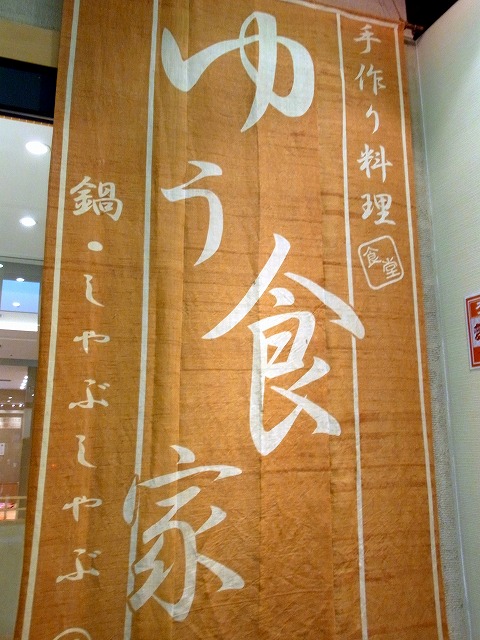 手作り料理
食堂
ゆう食家
鍋・しゃぶしゃぶ